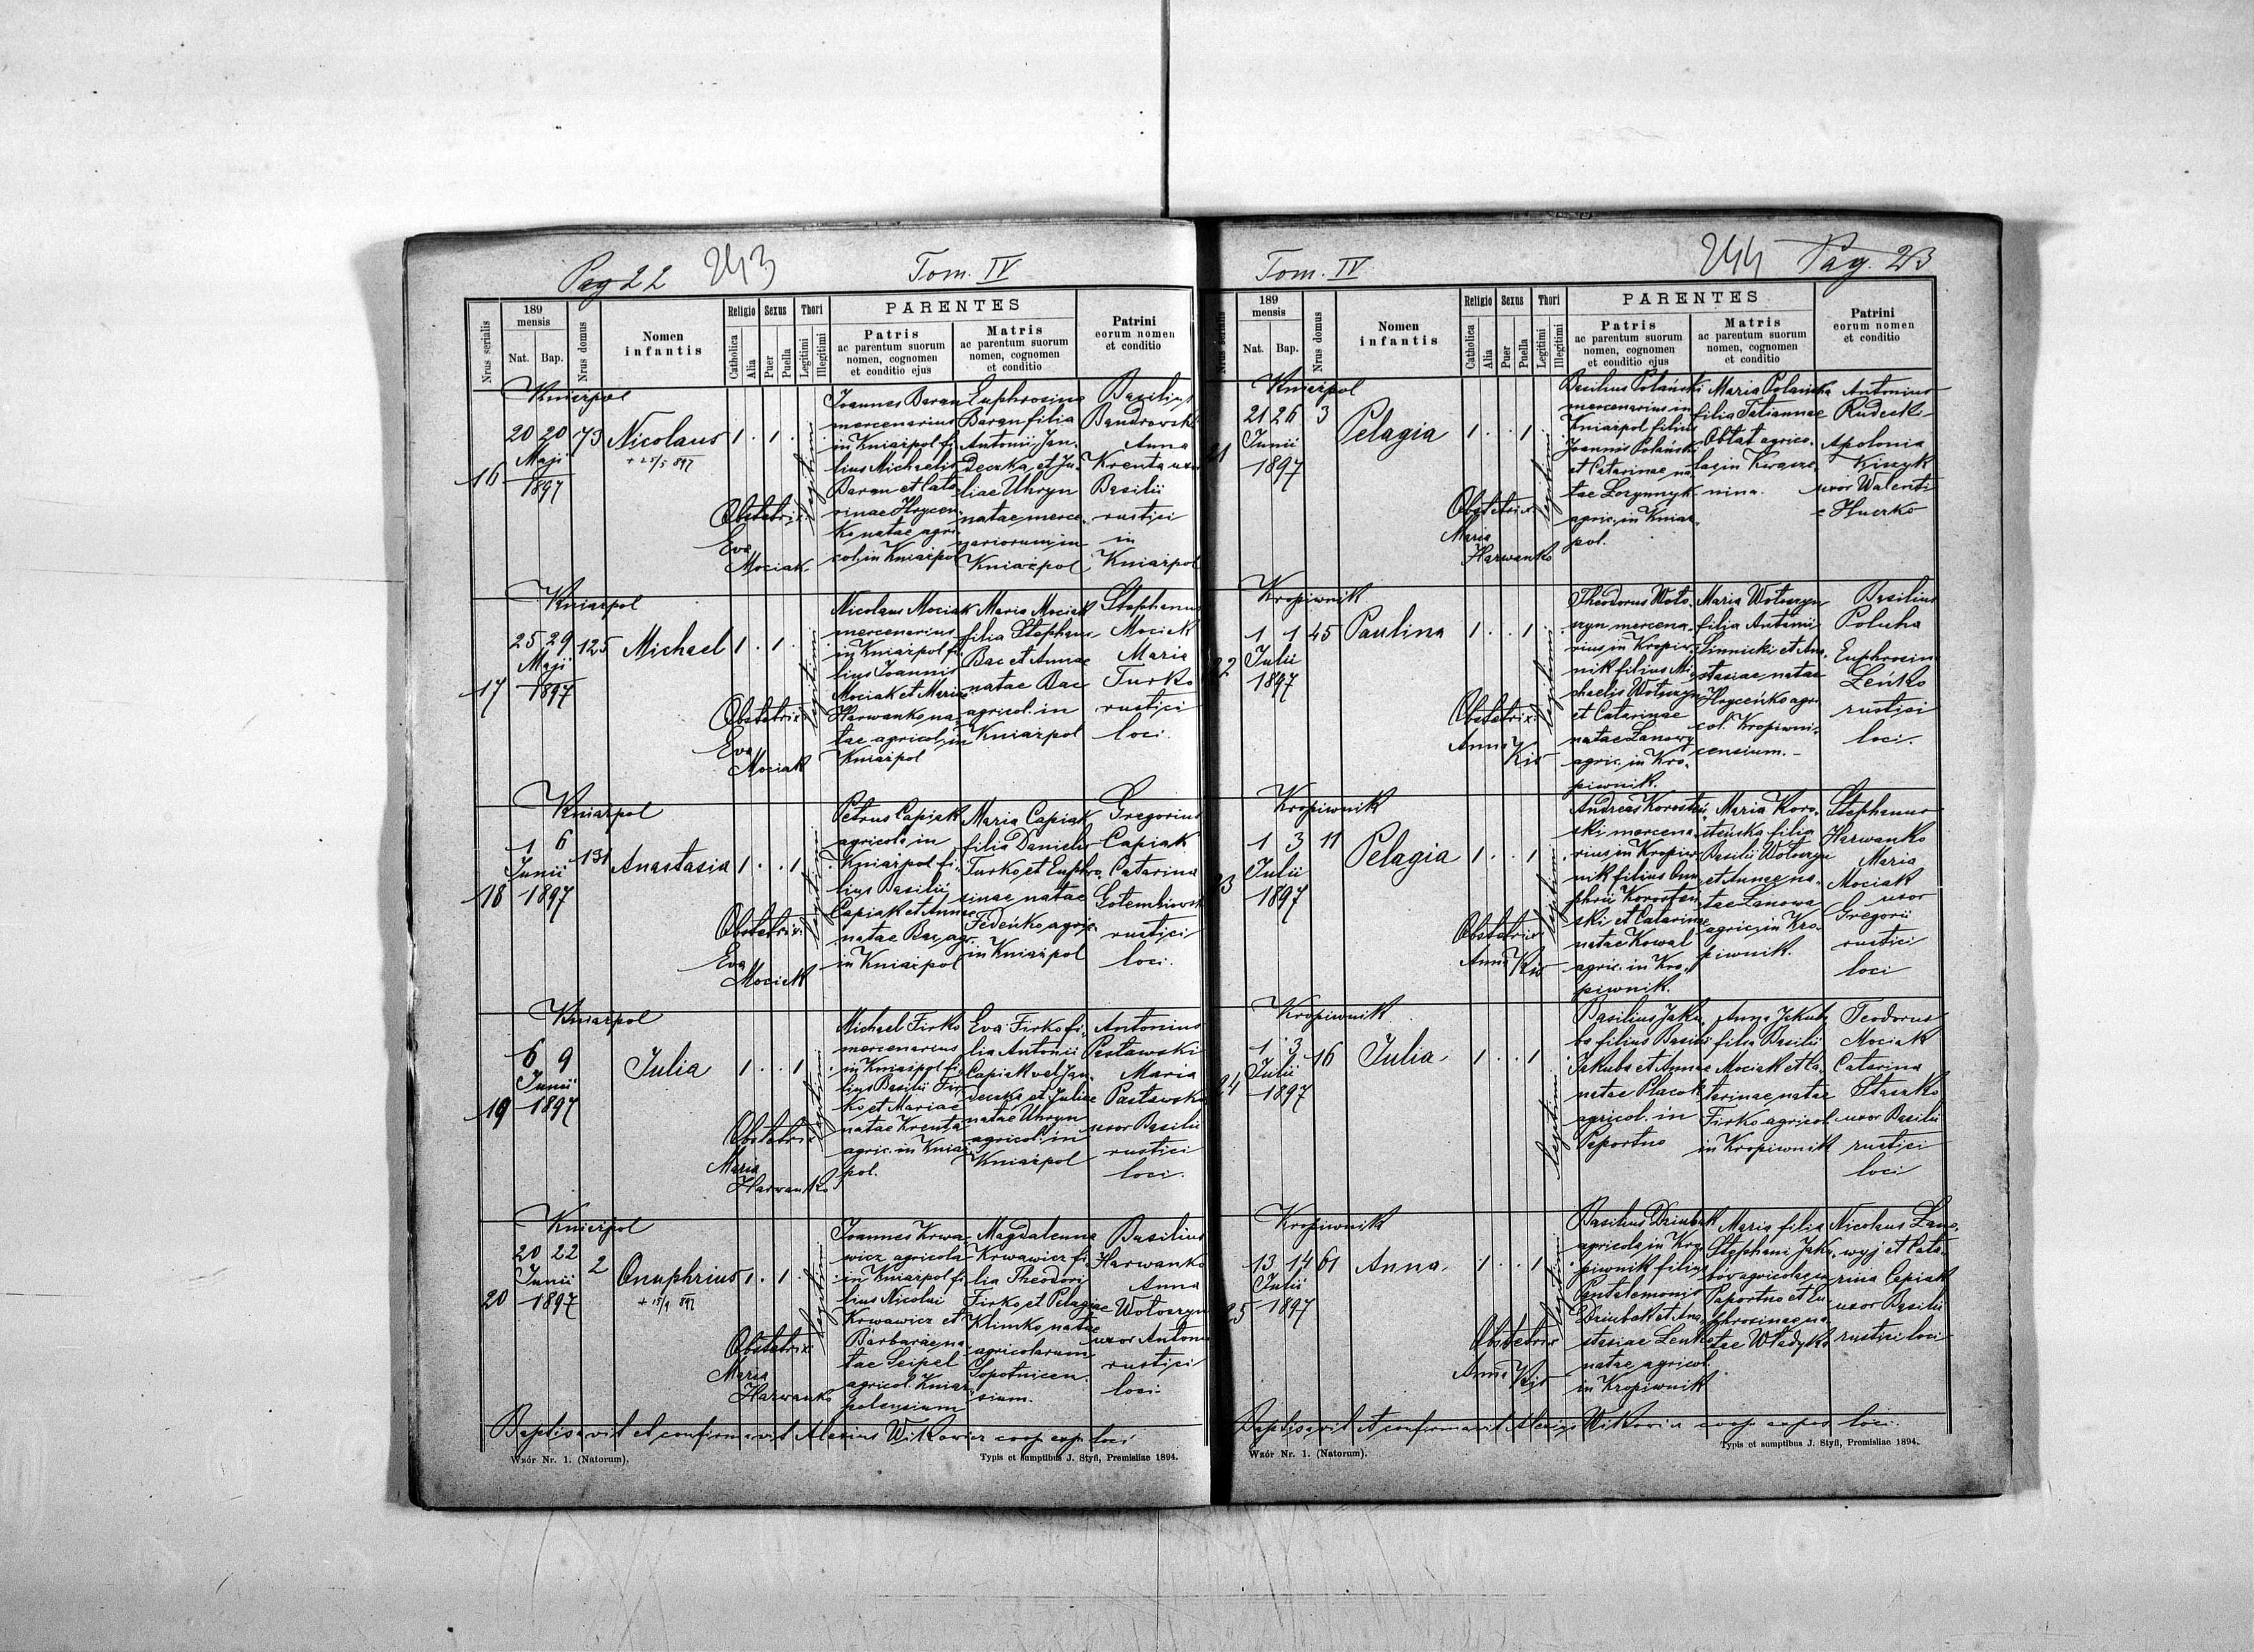 Pag 22 243 Tom. IV
Nrus serialis
189
mensis
Nat. Bap.
Nrus domus
Nomen
infantis
Religio Sexus Thori
Catholica Alia Puer Puella Legitimi Illegitimi
PARENTES
Patris
ac parentum suorum
nomen, cognomen
et conditio ejus
Matris
ac parentum suorum
nomen, cognomen
et conditio
Patrini
eorum nomen
et conditio
Kniażpol
16
20 20
Maji
1897
73
Nicolaus
+ 25/5 897
1 . 1 .
legitimi
Obstetrix
Eva
Mociak
Joannes Baran
mercenarius
in Kniażpol fi-
lius Michaelis
Baran et Cata-
rinae Hrycen-
ko natae agri-
col. in Kniażpol
Euphrosina
Baran filia
Antonii Jan-
deczka et Ju-
liae Uhryn
natae merce-
nariorum in
Kniażpol
Basilius
Bandrowski
Anna
Krenta uxor
Basilii
rustici
in
Kniażpol
Kniażpol
17
25 29
Maji
1897
125
Michael
1 . 1 .
legitimi
Obstetrix
Eva
Mociak
Nicolaus Mociak
mercenarius
in Kniażpol fi-
lius Joannis
Mociak et Mariae
Harwanko na-
tae agricol. in
Kniażpol
Maria Mociak
filia Stephani
Bac et Annae
natae Bac
agricol. in
Kniażpol
Stephanus
Mociak
Maria
Turko
rustici
loci.
Kniażpol
18
1 6
Junii
1897
131
Anastasia
1 . . 1
legitimi
Obstetrix
Eva
Mociak
Petrus Capiak
agricola in
Kniażpol fi-
lius Basilii
Capiak et Annae
natae Bac agr.
in Kniażpol
Maria Capiak
filia Danielis
Turko et Euphro-
sinae natae
Fedeńko agric.
in Kniażpol
Gregorius
Capiak
Catarina
Gołembiowski
rustici
loci.
Kniażpol
19
6 9
Junii
1897
Julia
1 . . 1
legitimi
Obstetrix
Maria
Harwanko
Michael Firko
mercenarius
in Kniażpol fi-
lius Basilii Fir-
ko et Mariae
natae Krenta
agric. in Kniaż-
pol.
Eva Firko fi-
lia Antonii
Capiak vel Jan-
deczka et Juliae
natae Uhryn
agricol. in
Kniażpol
Antonius
Pasławski
Maria
Pasławska
uxor Basilii
rustici
loci.
Kniażpol
20
20 22
Junii
1897
2
Onuphrius
+ 15/9 897
1 . 1 .
legitimi
Obstetrix
Maria
Harwanko
Joannes Krwa-
wicz agricola
in Kniażpol fi-
lius Nicolai
Krwawicz et
Barbarae na-
tae Seipel
agricol. Kniaż-
polensium
Magdalenna
Krwawicz fi-
lia Theodori
Firko et Pelagiae
Klimko natae
agricolarum
Sopotnicen-
sium.
Basilius
Harwanko
Anna
Wołoszyn
uxor Antonii
rustici
loci.
Baptisavit et confirmavit Alexius Witkowicz coop. exp. loci
Wzór Nr. 1. (Natorum).
Typis et sumptibus J. Styfi, Premisliae 1894.
Tom. IV 244 Pag. 23
Nrus serialis
189
mensis
Nat. Bap.
Nrus domus
Nomen
infantis
Religio Sexus Thori
Catholica Alia Puer Puella Legitimi Illegitimi
PARENTES
Patris
ac parentum suorum
nomen, cognomen
et conditio ejus
Matris
ac parentum suorum
nomen, cognomen
et conditio
Patrini
eorum nomen
et conditio
Kniażpol
21
21 26
Junii
1897
3
Pelagia
1 . . 1
legitimi
Obstetrix
Maria
Harwanko
Basilius Polański
mercenarius in
Kniażpol filius
Joannis Polański
et Catarinae na-
tae Łozynnyk
agric. in Kniaż-
pol.
Maria Polańska
filia Tatiannae
Obłat agrico-
lae in Kwasze-
nina.
Antonius
Rudecki
Apolonia
Kiszyk
uxor Walenti
Huczko
Kropiwnik
22
1 1
Julii
1897
45
Paulina
1 . . 1
legitimi
Obstetrix
Anna
Kis
Theodorus Woło-
szyn mercena-
rius in Kropiw-
nik filius Mi-
chaelis Wołoszyn
et Catarinae
natae Łanowy
agric. in Kro-
piwnik.
Maria Wołoszyn
filia Antonii
Linnicki et Ana-
stasiae natae
Hryceńko agri-
col. Kropiwni-
censium.
Basilius
Poluha
Euphrosina
Leńko
rustici
loci.
Kropiwnik
23
1 3
Julii
1897
11
Pelagia
1 . . 1
legitimi
Obstetrix
Anna
Kis
Andreas Korosteń-
ski mercena-
rius in Kropiw-
nik filius Onu-
phrii Korosteń-
ski et Catarinae
natae Kowal
agric. in Kro-
piwnik.
Maria Koro-
steńska filia
Basilii Wołoszyn
et Annae na-
tae Łanowa
agric. in Kro-
piwnik.
Stephanus
Harwanko
Maria
Mociak
uxor
Gregorii
rustici
loci
Kropiwnik
24
1 3
Julii
1897
16
Julia
1 . . 1
legitimi
Basilius Jaku-
ba filius Basilii
Jakuba et Annae
natae Placok
agricol. in
Paportno
Anna Jakuba
filia Basilii
Mociak et Ca-
tarinae natae
Firko agricol.
in Kropiwnik
Teodorus
Mociak
Catarina
Staszko
uxor Basilii
rustici
loci
Kropiwnik
25
13 14
Julii
1897
61
Anna
1 . . 1
legitimi
Obstetrix
Anna
Kis
Basilius Dziubak
agricola in Kro-
piwnik filius
Pantalemonis
Dziubak et Ana-
stasiae Lenko
natae agricol.
in Kropiwnik
Maria filia
Stephani Jaku-
bów agricolae in
Paportno et Eu-
phrosinae na-
tae Władyka
Nicolaus Łano-
wyj et Cata-
rina Capiak
uxor Basilii
rustici loci
Baptisavit et confirmavit Alexius Witkowicz coop. expos. loci.
Wzór Nr. 1. (Natorum).
Typis et sumptibus J. Styfi, Premisliae 1894.